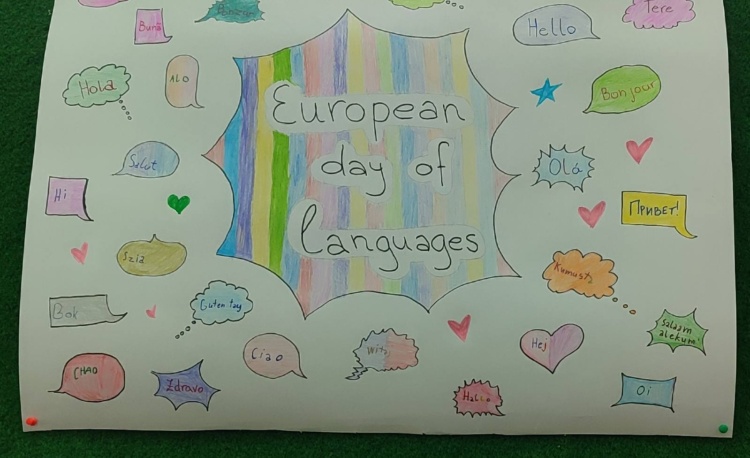 Bună
Hello
Tere
Hola
ALO
Bonjour
European
day of
languages
Salut
Olá
Hi
ПРИВЕТ!
Szia
Kumusta
Bok
Guten tag
Salaam
alekum!
Ciao
Witaj
Hej
CHAO
Zdravo
Hallo
Oi